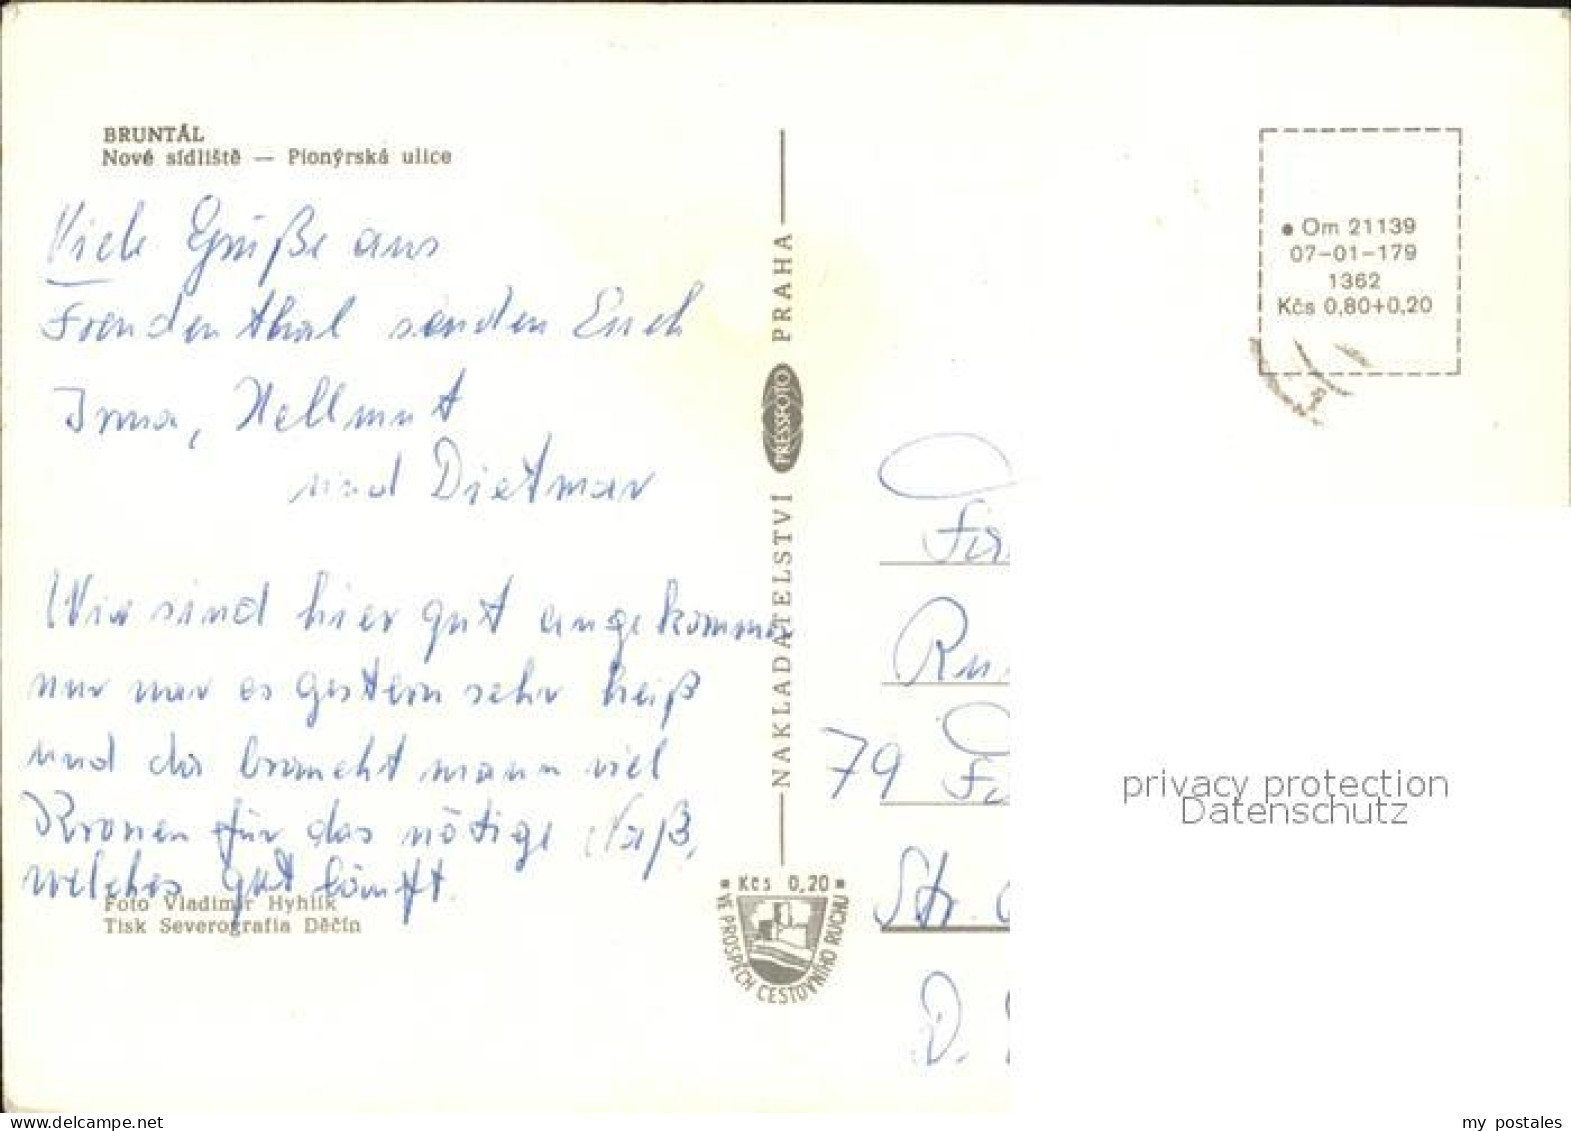 BRUNTÁL
Nové sídliště — Pionýrská ulice
Viele Grüße aus
Freudenthal senden Euch
Irma, Hellmut
und Dietmar
Wir sind hier gut angekommen
nur war es gestern sehr heiß
und da braucht mann viel
Kronen für das nötige Naß,
welches gut
Foto Vladimír Hyhlík
Tisk Severografia Děčín
NAKLADATELSTVÍ PRESSFOTO PRAHA
Kčs 0,20
VE PROSPĚCH CESTOVNÍHO RUCHU
Om 21139
07-01-179
1362
Kčs 0,80+0,20
79
Str.
D.
privacy protection
Datenschutz
my postales